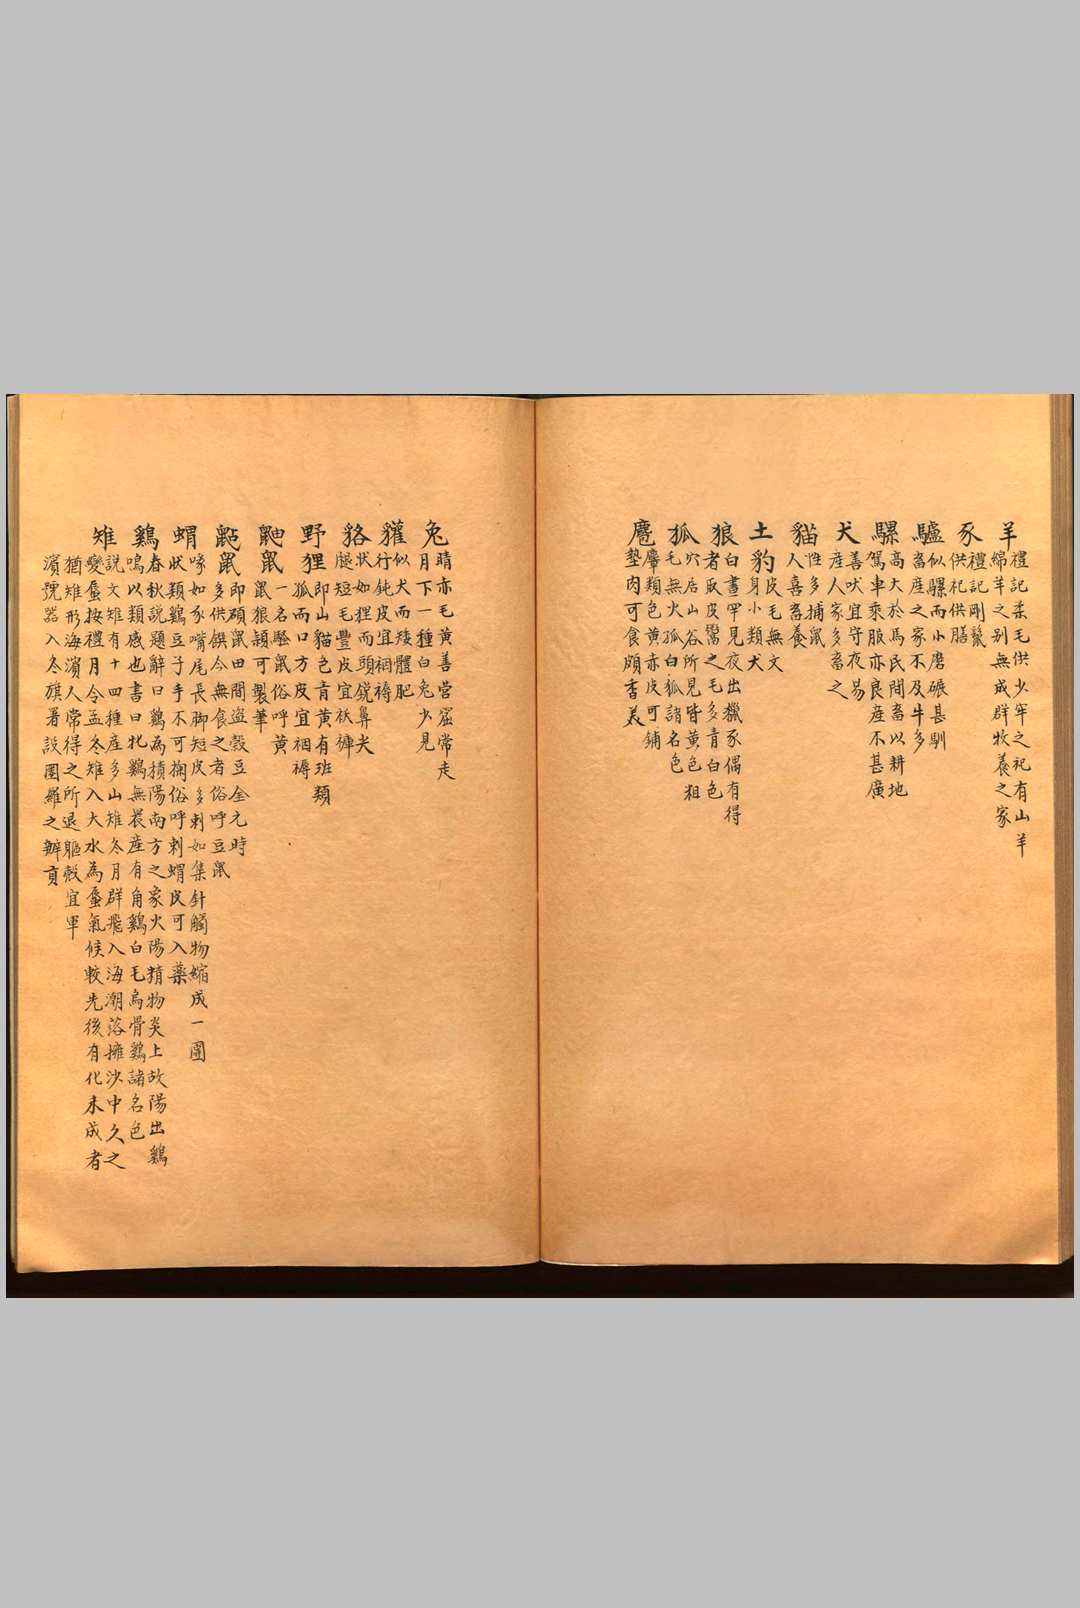 羊
禮記柔毛供少牢之祀有山羊
綿羊之别無成群牧養之家
豕
禮記剛鬣
供祀供膳
驢
似騾而小磨碾甚馴
畜産之家不及牛多
騾
高大於馬民間畜以耕地
駕車乘服亦良産不甚廣
犬
善吠宜守夜易
産人家多畜之
貓
性多捕鼠
人喜畜養
土豹
皮毛無文
身小類犬
狼
白晝罕見夜出獵豕偶有得
者取皮鬻之毛多青白色
狐
穴居山谷所見皆黄色狙
毛無火狐白狐諸名色
麅
麞類色黄赤皮可鋪
墊肉可食頗香美
兔
睛亦毛黄善营窟常走
月下一種白兔少見
獾
似犬而矮體肥
行鈍皮宜裀褥
狢
状如狸而頭鋭鼻尖
腿短毛豐皮宜袄褲
野狸
即山貓色青黄有班類
狐而口方皮宜裀褥
鼬鼠
一名騷鼠俗呼黄
鼠狼頴可製筆
鼫鼠
即碩鼠田間盗穀豆金元時
多供饌今無食之者俗呼豆鼠
蝟
喙如豕嘴尾長脚短皮多刺如集針觸物縮成一團
状類鷄豆子手不可掬俗呼刺蝟皮可入藥
鷄
春秋説題辭曰鷄為積陽南方之象火陽精物炎上故陽出鷄
鳴以類感也書曰牝鷄無晨産有角鷄白毛烏骨鷄諸名色
雉
説文雉有十四種産多山雉冬月群飛入海潮落擁沙中久之
變蜃按禮月令孟冬雉入大水為蜃氣候較先後有化未成者
猶雉形海濵人常得之所退軀殼宜軍
濵號器入冬旗署設圍羅之辦貢